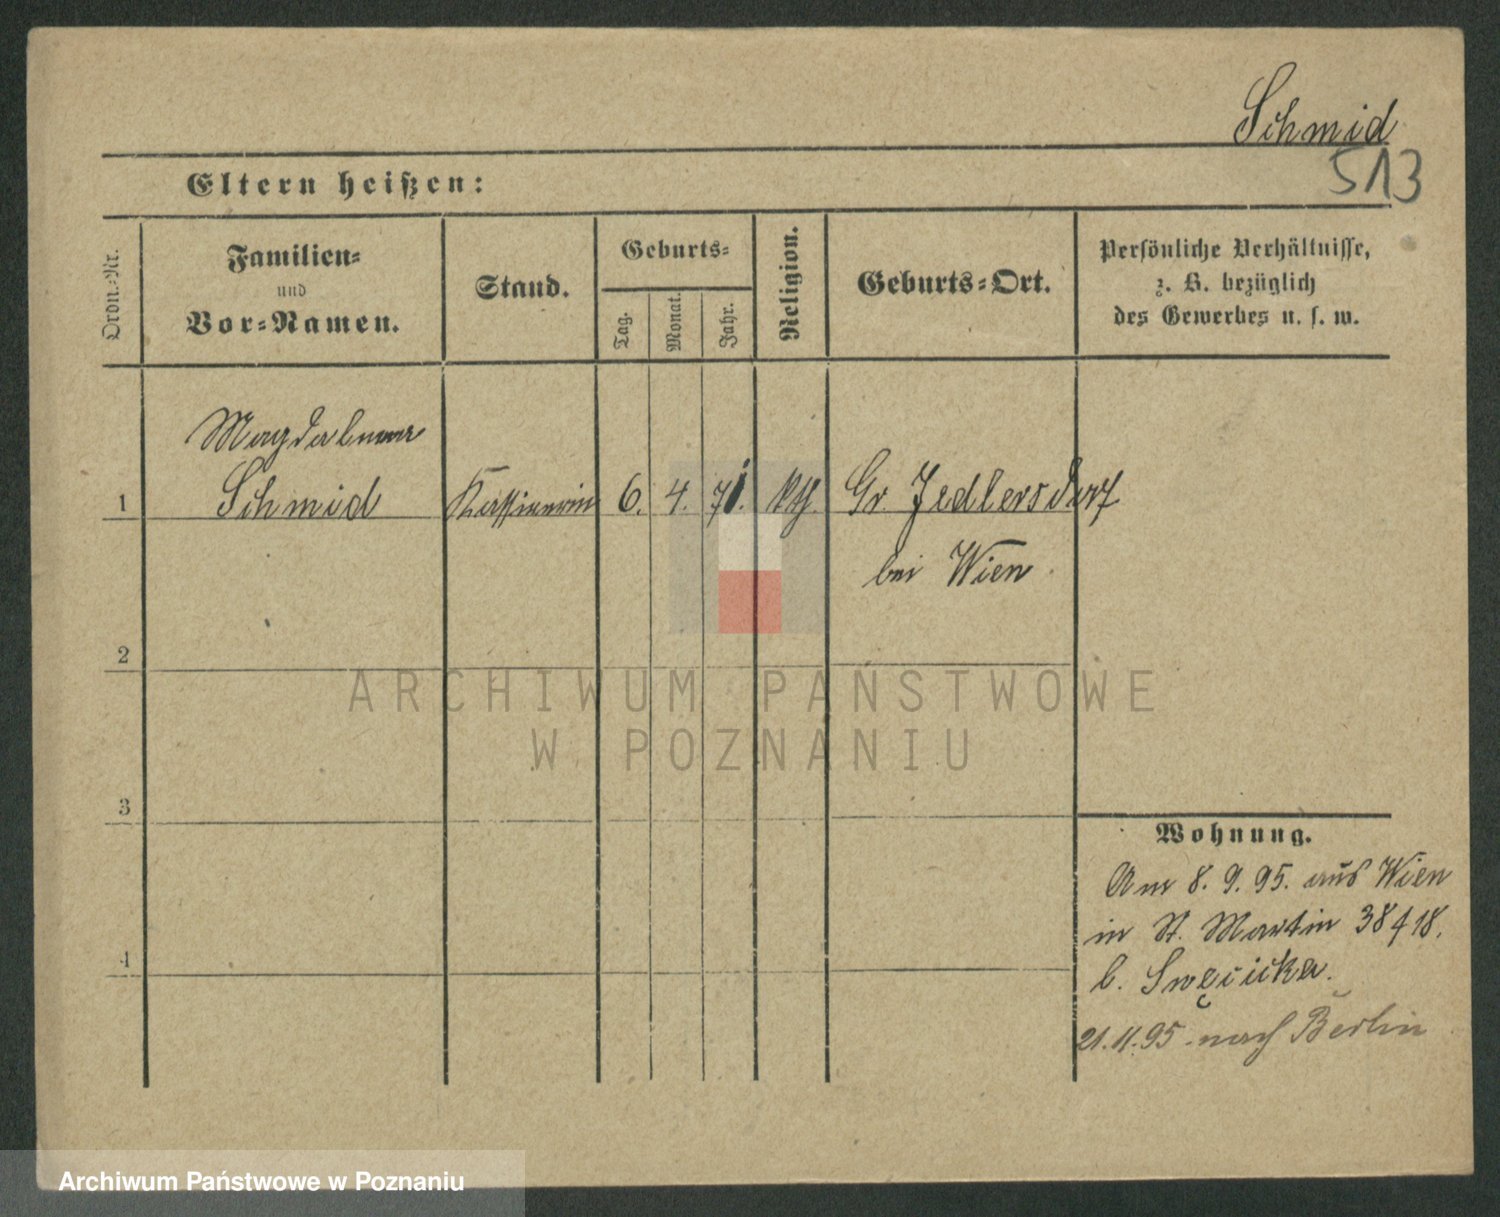 Schmid
513
Eltern heißen:
Ordn.-Nr.
Familien-
und
Vor-Namen.
Stand.
Geburts-
Tag.
Monat.
Jahr.
Religion.
Geburts-Ort.
Persönliche Verhältnisse,
z. B. bezüglich
des Gewerbes u. s. w.
Magdalena
1 Schmid Kassirerin 6. 4. 71. kth. Gr. Jedlersdorf
bei Wien
2
3
4
Wohnung.
Am 8. 9. 95. aus Wien
in St. Martin 38 f 18.
b. Swęcicka.
21.11.95 nach Berlin
ARCHIWUM PAŃSTWOWE
W POZNANIU
Archiwum Państwowe w Poznaniu